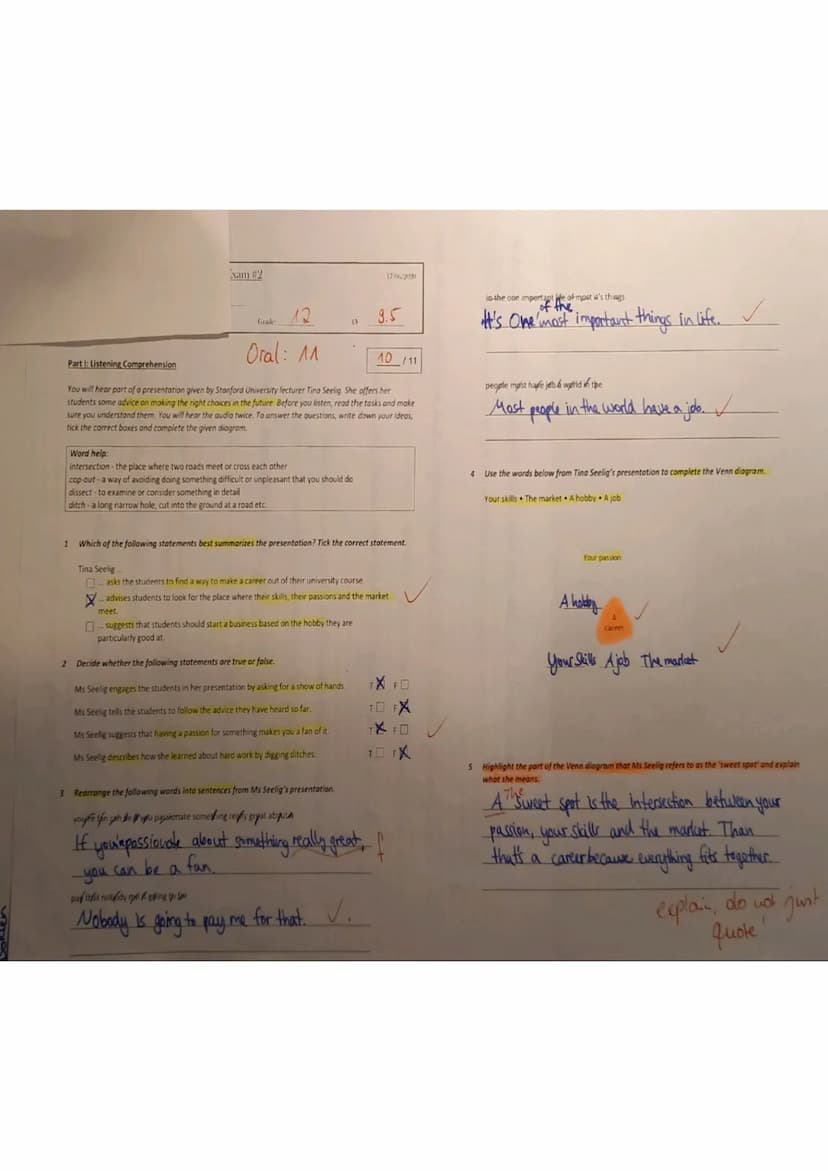 Exam #2
Grade 12
Ø 9.5
Oral: 11
10 / 11
Part I: Listening Comprehension
You will hear part of a presentation given by Stanford University lecturer Tina Seelig. She offers her
students some advice on making the right choices in the future. Before you listen, read the tasks and make
sure you understand them. You will hear the audio twice. To answer the questions, write down your ideas,
tick the correct boxes and complete the given diagram.
Word help:
intersection - the place where two roads meet or cross each other
cop-out - a way of avoiding doing something difficult or unpleasant that you should do
dissect - to examine or consider something in detail
ditch - a long narrow hole, cut into the ground at a road etc.
1 Which of the following statements best summarizes the presentation? Tick the correct statement.
Tina Seelig ...
☐ ... asks the students to find a way to make a career out of their university course
☒ ... advises students to look for the place where their skills, their passions and the market
meet.
☐ ... suggests that students should start a business based on the hobby they are
particularly good at.
2 Decide whether the following statements are true or false.
Ms Seelig engages the students in her presentation by asking for a show of hands. T ☒ F ☐
Ms Seelig tells the students to follow the advice they have heard so far. T ☐ F ☒
Ms Seelig suggests that having a passion for something makes you a fan of it. T ☒ F ☐
Ms Seelig describes how she learned about hard work by digging ditches. T ☐ F ☒
3 Rearrange the following words into sentences from Ms Seelig's presentation.
If you're passionate about something really great,
you can be a fan.
Nobody is going to pay me for that.
of the
It's One most important things in life.
Most people in the world have a job.
4 Use the words below from Tina Seelig's presentation to complete the Venn diagram.
Your skills • The market • A hobby • A job
Your passion
A hobby
A
Career
Your Skills A job The market
5 Highlight the part of the Venn diagram that Ms Seelig refers to as the 'sweet spot' and explain
what she means.
The
A Sweet spot is the Intersection between your
passion, your skills and the market. Than
that's a career because everything fits together
explain, do not just
quote!